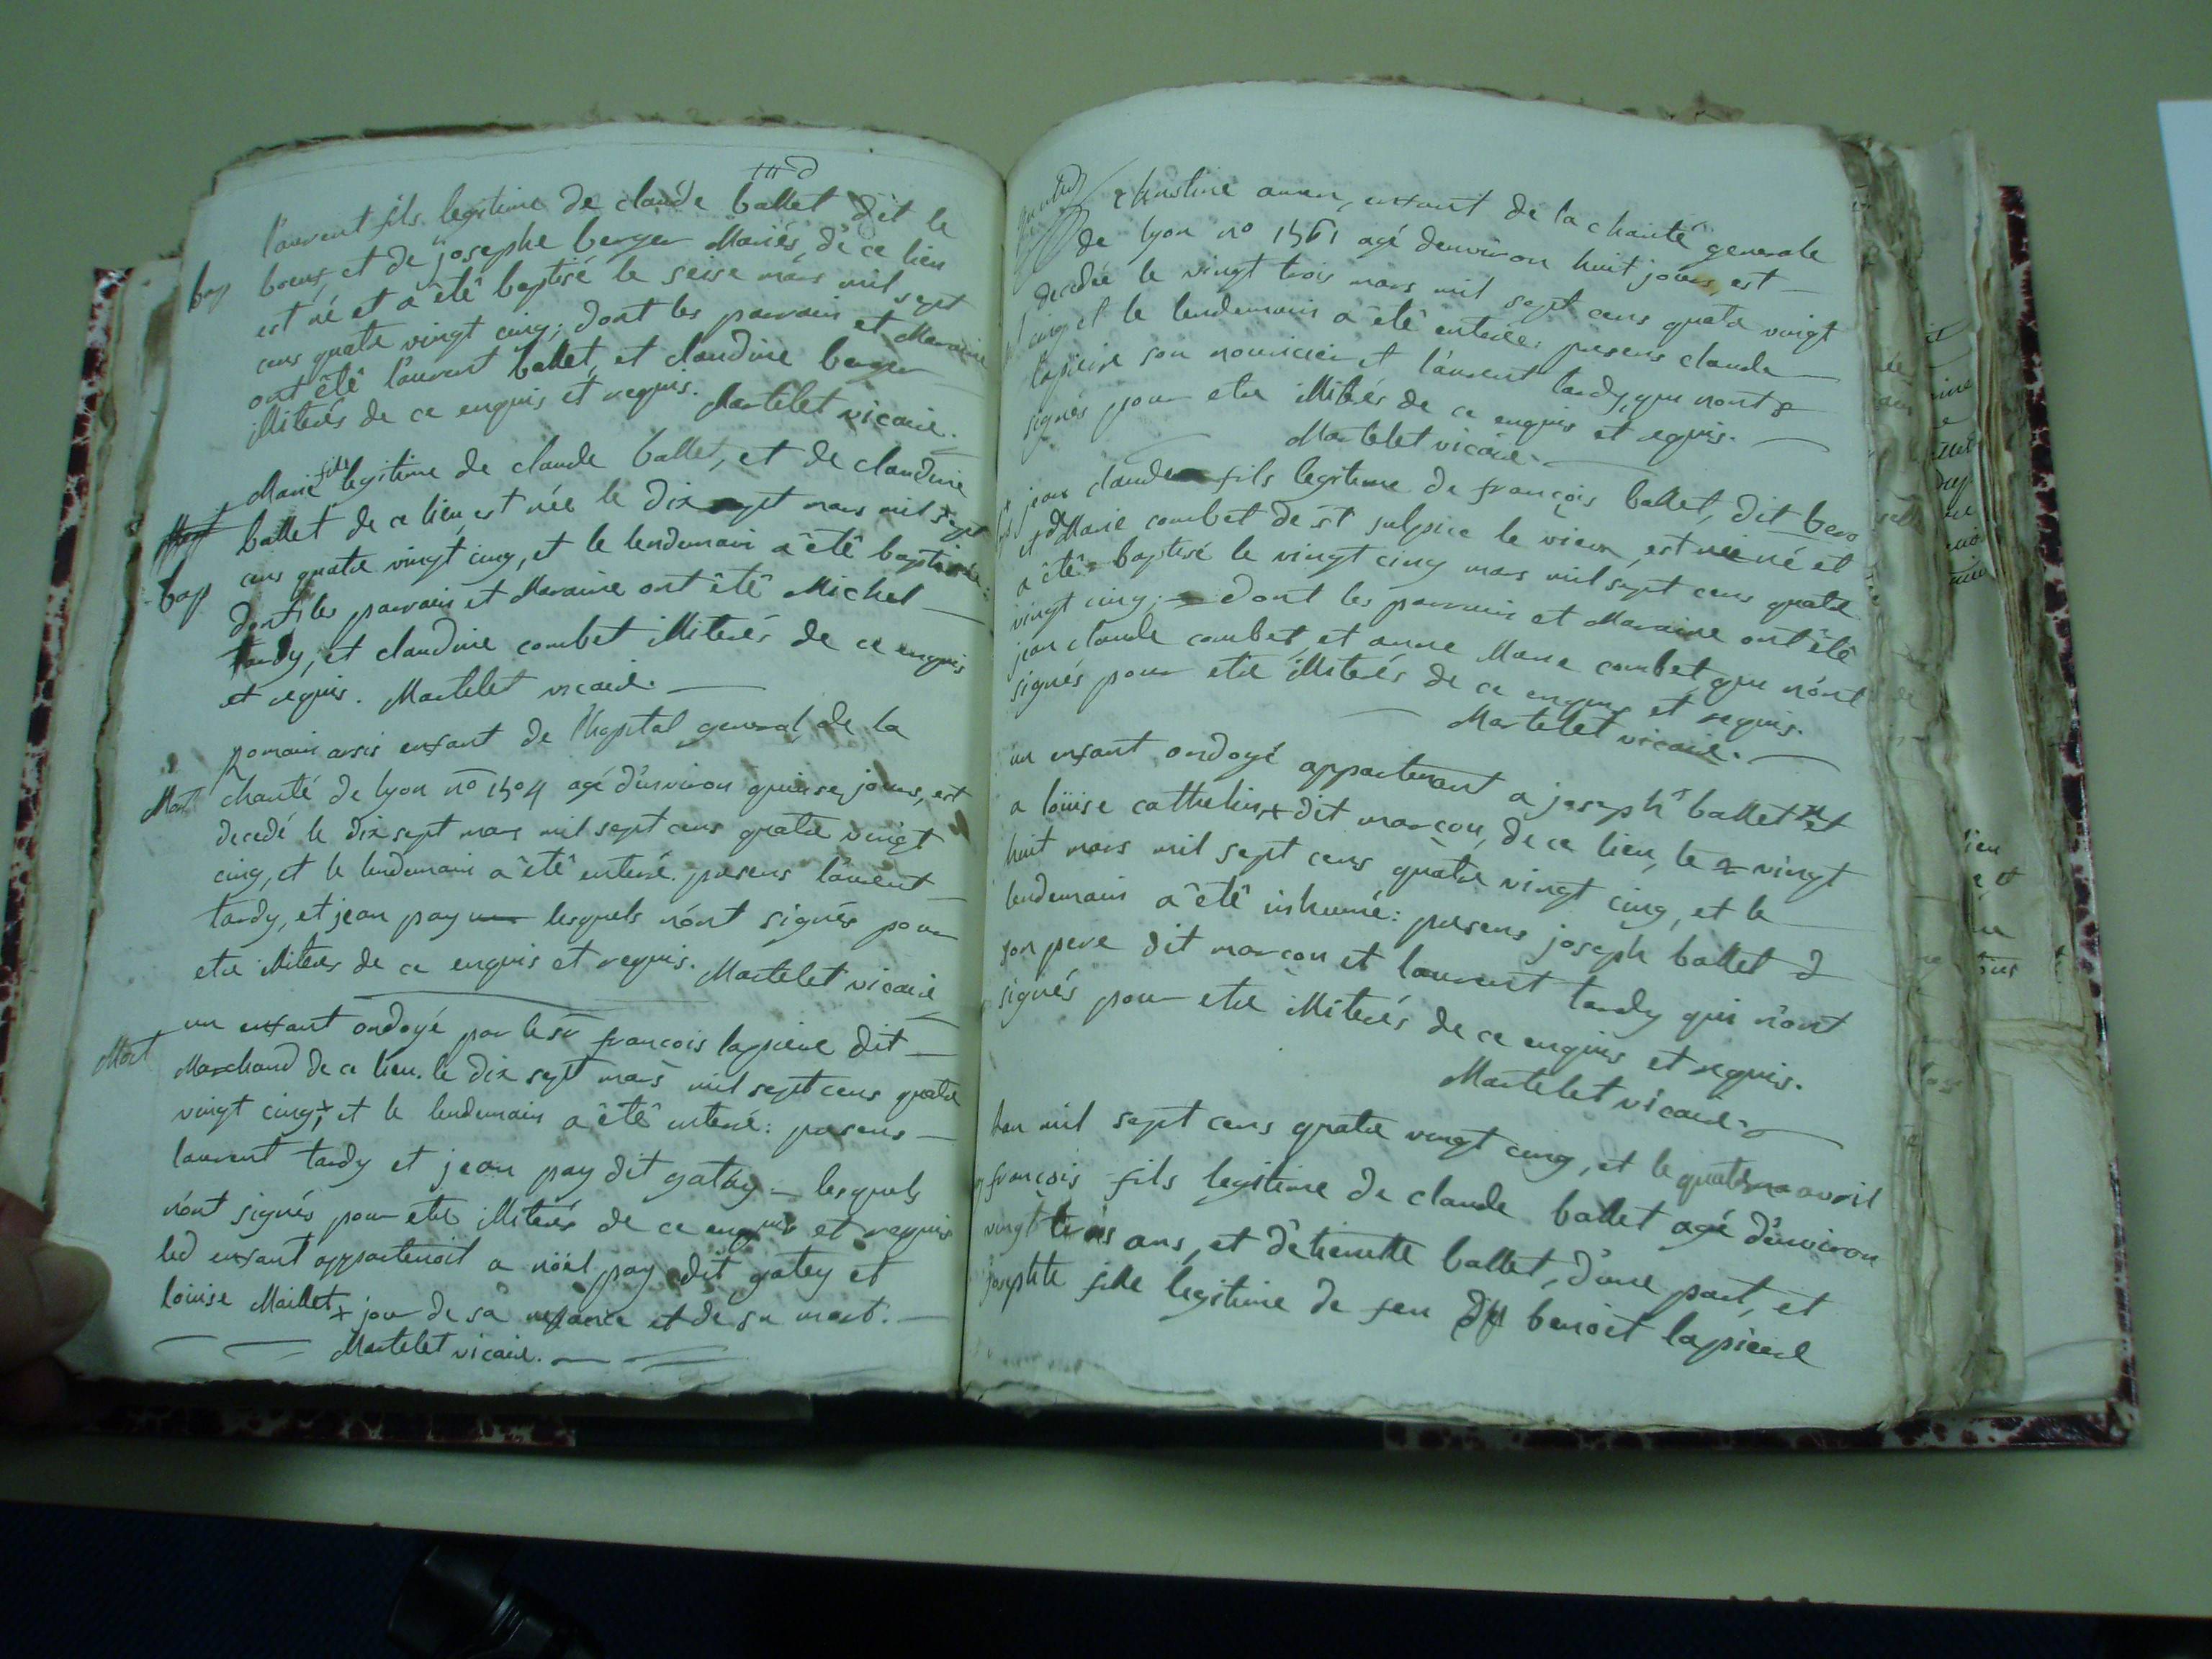 laurent fils legitime de claude ballet dit le
bap boeuf, et de josephe berger Mariés, de ce lieu
est né et a été baptisé le seise mars mil sept
cens quatre vingt cinq; dont les parrain et Maraine
ont été laurent ballet, et claudine berger
illiterés de ce enquis et requis. Martelet vicaire.
Marie fille legitime de claude ballet, et de claudine
ballet de ce lieu, est née le dix sept mars mil sept
bap cens quatre vingt cinq, et le lendemain a été baptisée:
dont les parrain et Maraine ont été Michel
tardy, et claudine combet illiterés de ce enquis
et requis. Martelet vicaire.
Romain arsis enfant de l'hopital general de la
Mort charité de lyon no 1504 agé d'environ quinse jours, est
decedé le dix sept mars mil sept cens quatre vingt
cinq, et le lendemain a été enterré. presens laurent
tardy, et jean pay lesquels n'ont signés pour
etre illiterés de ce enquis et requis. Martelet vicaire
un enfant ondoyé par le sr francois lapierre dit
Mort Marchand de ce lieu. le dix sept mars mil sept cens quatre
vingt cinq+, et le lendemain a été enterré: presens
laurent tardy et jean pay dit gatey lesquels
n'ont signés pour etre illiterés de ce enquis et requis
led enfant appartenoit a noël pay dit gatey et
loüise Maillet + jour de sa nessance et de sa mort.
Martelet vicaire.
christine enfant de la charité generale
de lyon no 1561 agé denviron huit jours, est
decedée le vingt trois mars mil sept cens quatre vingt
cinq et le lendemain a été enterrée: presens claude
lapierre son nourricier et laurent tardy, qui n'ont
signés pour etre illiterés de ce enquis et requis.
Martelet vicaire.
jean claude fils legitime de françois ballet, dit
et de Marie combet de st sulpice le vieux, est né et
a été baptisé le vingt cinq mars mil sept cens quatre
vingt cinq; dont les parrain et Maraine ont été
jean claude combet, et anne Marie combet, qui n'ont
signés pour etre illiterés de ce enquis et requis.
Martelet vicaire.
un enfant ondoyé appartenant a joseph ballet et
a loüise cathelin + dit marcou, de ce lieu, le vingt
huit mars mil sept cens quatre vingt cinq, et le
lendemain a été inhumé: presens joseph ballet
son pere dit marcou et laurent tardy qui n'ont
signés pour etre illiterés de ce enquis et requis.
Martelet vicaire.
l'an mil sept cens quatre vingt cinq, et le avril
françois fils legitime de claude ballet agé d'environ
vingt trois ans, et d'etiennette ballet, d'une part, et
josephte fille legitime de feu benoit lapierre